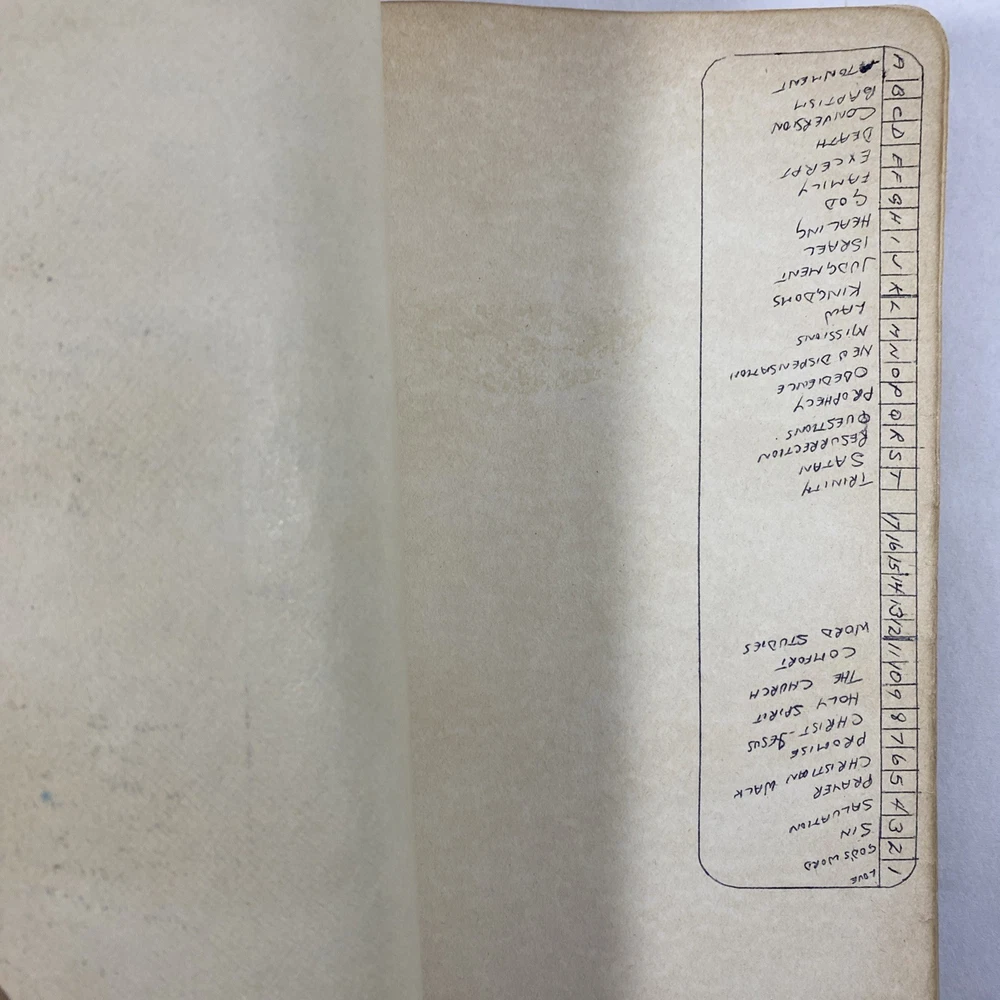 1 LOVE
2 GOD'S WORD
3 SIN
4 SALVATION
5 PRAYER
6 CHRISTIAN WALK
7 PROMISE
8 CHRIST-JESUS
9 HOLY SPIRIT
10 THE CHURCH
11 COMFORT
12 WORD STUDIES
13
14
15
16
17
T TRINITY
S SATAN
R RESURRECTION
Q QUESTIONS
P PROPHECY
O OBEDIENCE
N NEW DISPENSATION
M MISSIONS
L LAW
K KINGDOMS
J JUDGMENT
I ISRAEL
H HEALING
G GOD
F FAMILY
E EXCERPT
D DEATH
C CONVERSION
B BAPTISM
A ATONMENT